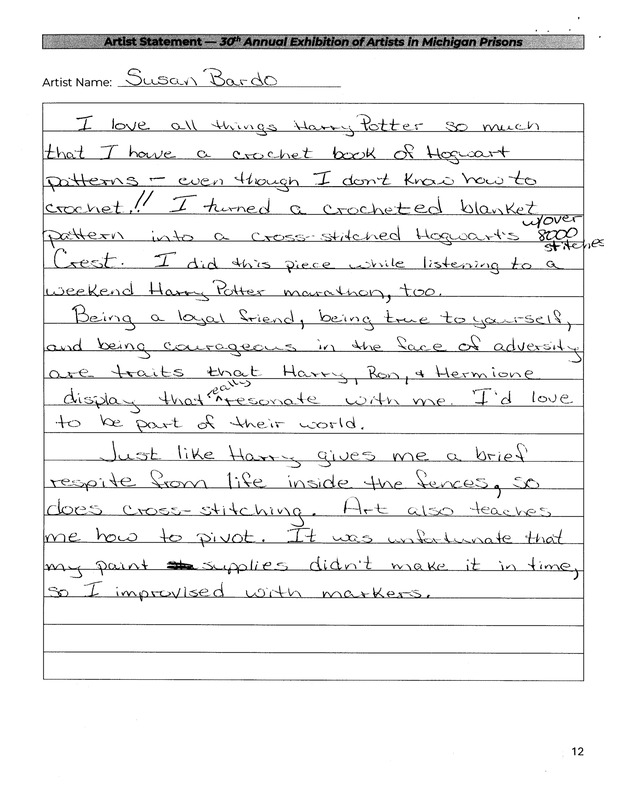 Artist Statement — 30th Annual Exhibition of Artists in Michigan Prisons
Artist Name: Susan Bardo
I love all things Harry Potter so much
that I have a crochet book of Hogwart
patterns - even though I don't know how to
crochet!! I turned a crocheted blanket
pattern into a cross-stitched Hogwarts w/over 8000 stitches
Crest. I did this piece while listening to a
weekend Harry Potter marathon, too.
Being a loyal friend, being true to yourself,
and being courageous in the face of adversity
are traits that Harry, Ron, & Hermione
display that really resonate with me. I'd love
to be part of their world.
Just like Harry gives me a brief
respite from life inside the fences, so
does cross-stitching. Art also teaches
me how to pivot. It was unfortunate that
my paint supplies didn't make it in time,
so I improvised with markers.
12